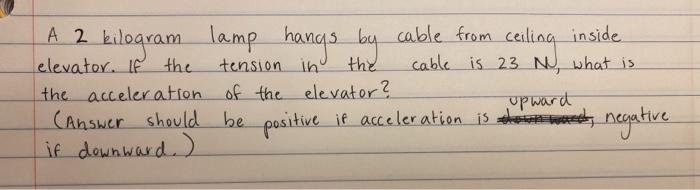 A 2 kilogram lamp hangs by cable from ceiling inside
elevator. If the tension in the cable is 23 N, what is
the acceleration of the elevator?
(Answer should be positive if acceleration is upward, negative
if downward.)